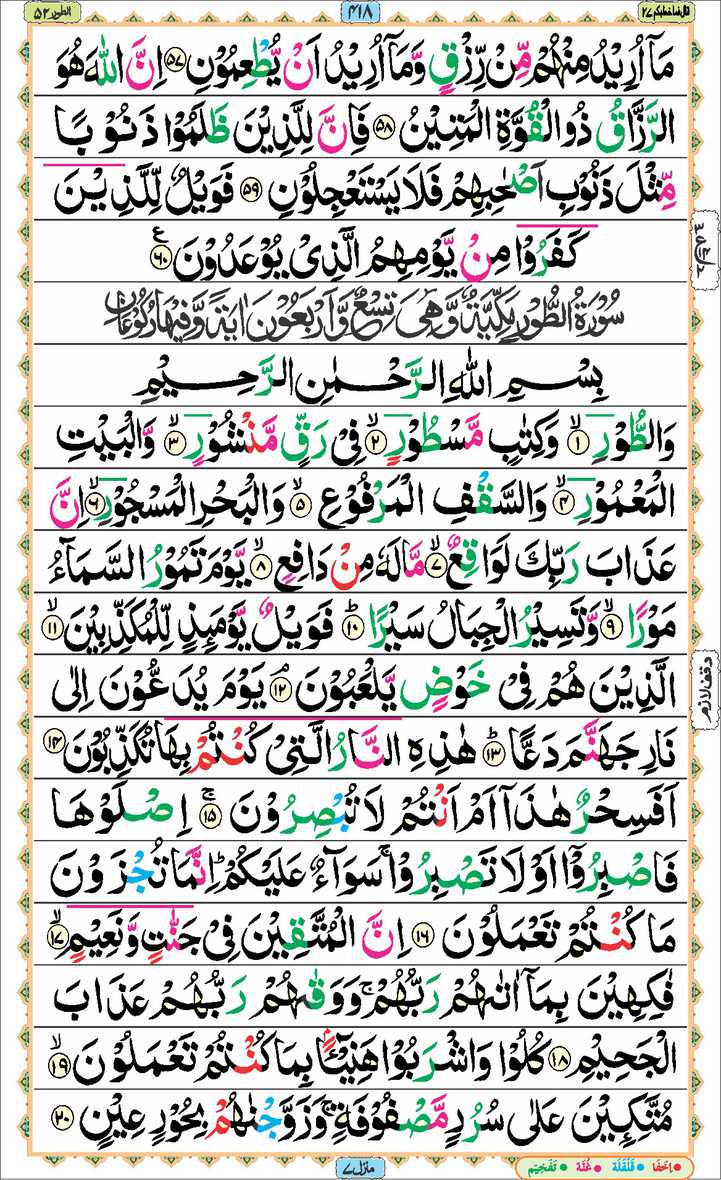 الطور ٥٢
٤١٨
قال فما خطبكم ٢٧
مَاۤ اُرِیْدُ مِنْهُمْ مِّنْ رِّزْقٍ وَّمَاۤ اُرِیْدُ اَنْ یُّطْعِمُوْنِ ﴿۵۷﴾ اِنَّ اللّٰهَ هُوَ
الرَّزَّاقُ ذُو الْقُوَّةِ الْمَتِیْنُ ﴿۵۸﴾ فَاِنَّ لِلَّذِیْنَ ظَلَمُوْا ذَنُوْبًا
مِّثْلَ ذَنُوْبِ اَصْحٰبِهِمْ فَلَا یَسْتَعْجِلُوْنِ ﴿۵۹﴾ فَوَیْلٌ لِّلَّذِیْنَ
كَفَرُوْا مِنْ یَّوْمِهِمُ الَّذِیْ یُوْعَدُوْنَ ﴿۶۰﴾ع
سُوْرَةُ الطُّوْرِ مَكِّیَّةٌ وَّهِیَ تِسْعٌ وَّاَرْبَعُوْنَ اٰیَةً وَّفِیْهَا رُكُوْعَانِ
بِسْمِ اللّٰهِ الرَّحْمٰنِ الرَّحِیْمِ
وَالطُّوْرِ ﴿۱﴾ۙ وَكِتٰبٍ مَّسْطُوْرٍ ﴿۲﴾ۙ فِیْ رَقٍّ مَّنْشُوْرٍ ﴿۳﴾ۙ وَّالْبَیْتِ
الْمَعْمُوْرِ ﴿۴﴾ۙ وَالسَّقْفِ الْمَرْفُوْعِ ﴿۵﴾ۙ وَالْبَحْرِ الْمَسْجُوْرِ ﴿۶﴾ۙ اِنَّ
عَذَابَ رَبِّكَ لَوَاقِعٌ ﴿۷﴾ۙ مَّا لَهٗ مِنْ دَافِعٍ ﴿۸﴾ۙ یَّوْمَ تَمُوْرُ السَّمَآءُ
مَوْرًا ﴿۹﴾ۙ وَّتَسِیْرُ الْجِبَالُ سَیْرًا ﴿۱۰﴾ؕ فَوَیْلٌ یَّوْمَىِٕذٍ لِّلْمُكَذِّبِیْنَ ﴿۱۱﴾ۙ
الَّذِیْنَ هُمْ فِیْ خَوْضٍ یَّلْعَبُوْنَ ﴿۱۲﴾ۘ یَوْمَ یُدَعُّوْنَ اِلٰی
نَارِ جَهَنَّمَ دَعًّا ﴿۱۳﴾ؕ هٰذِهِ النَّارُ الَّتِیْ كُنْتُمْ بِهَا تُكَذِّبُوْنَ ﴿۱۴﴾
اَفَسِحْرٌ هٰذَاۤ اَمْ اَنْتُمْ لَا تُبْصِرُوْنَ ﴿۱۵﴾ۚ اِصْلَوْهَا
فَاصْبِرُوْۤا اَوْ لَا تَصْبِرُوْا ۚ سَوَآءٌ عَلَیْكُمْ ؕ اِنَّمَا تُجْزَوْنَ
مَا كُنْتُمْ تَعْمَلُوْنَ ﴿۱۶﴾ اِنَّ الْمُتَّقِیْنَ فِیْ جَنّٰتٍ وَّنَعِیْمٍ ﴿۱۷﴾ۙ
فٰكِهِیْنَ بِمَاۤ اٰتٰىهُمْ رَبُّهُمْ ۚ وَوَقٰىهُمْ رَبُّهُمْ عَذَابَ
الْجَحِیْمِ ﴿۱۸﴾ كُلُوْا وَاشْرَبُوْا هَنِیْٓـئًۢا بِمَا كُنْتُمْ تَعْمَلُوْنَ ﴿۱۹﴾ۙ
مُتَّكِـِٕیْنَ عَلٰی سُرُرٍ مَّصْفُوْفَةٍ ۚ وَزَوَّجْنٰهُمْ بِحُوْرٍ عِیْنٍ ﴿۲۰﴾
وقف لازم
منزل ٧
اِخفَا قَلقَلَہ غُنَّہ تَفخِیم